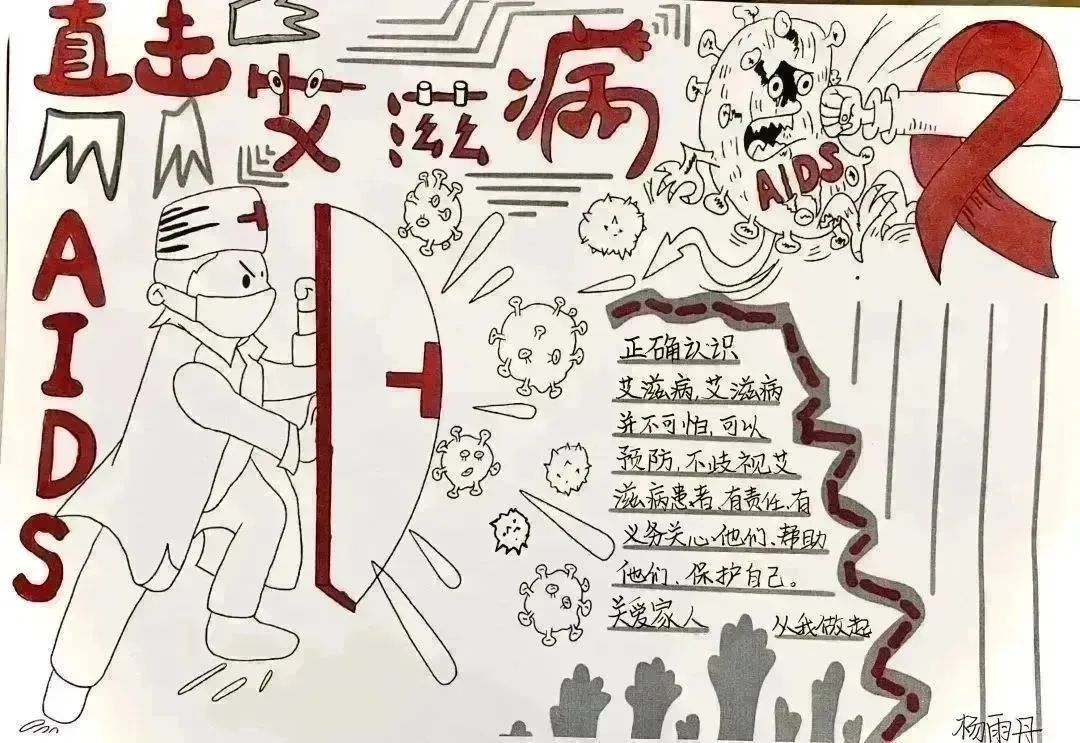 直击艾滋病
AIDS
AIDS
正确认识
艾滋病,艾滋病
并不可怕,可以
预防,不歧视艾
滋病患者,有责任、有
义务关心他们、帮助
他们、保护自己。
关爱家人 从我做起
杨雨丹